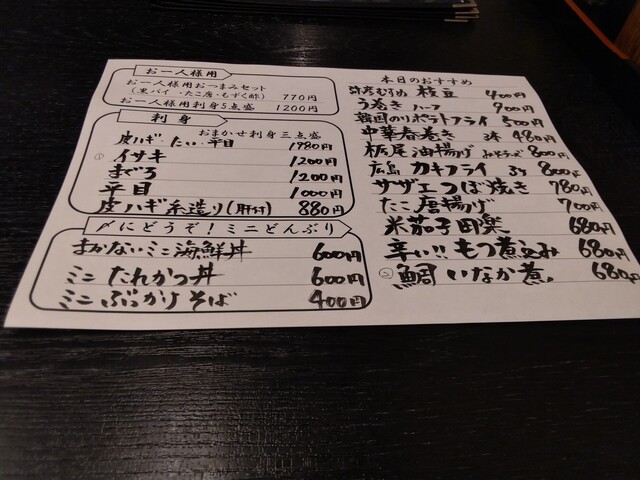 お一人様用
お一人様用おつまみセット
(黒バイ・たこ唐・もずく酢) 770円
お一人様用刺身5点盛 1200円
刺身
おまかせ刺身三点盛
皮ハギ・たい・平目 1980円
① イサキ 1200円
まぐろ 1200円
平目 1000円
皮ハギ糸造り(肝付) 880円
〆にどうぞ!ミニどんぶり
まかないミニ海鮮丼 600円
ミニたれかつ丼 600円
ミニぶっかけそば 400円
本日のおすすめ
弥彦むすめ 枝豆 400円
う巻き ハーフ 900円
韓国のりポテトフライ 500円
中華春巻き 3本 480円
栃尾油揚げ 800円
広島カキフライ 3ケ 800円
サザエつぼ焼き 780円
たこ唐揚げ 700円
米茄子田楽 680円
辛い!!もつ煮込み 680円
② 鯛いなか煮 680円